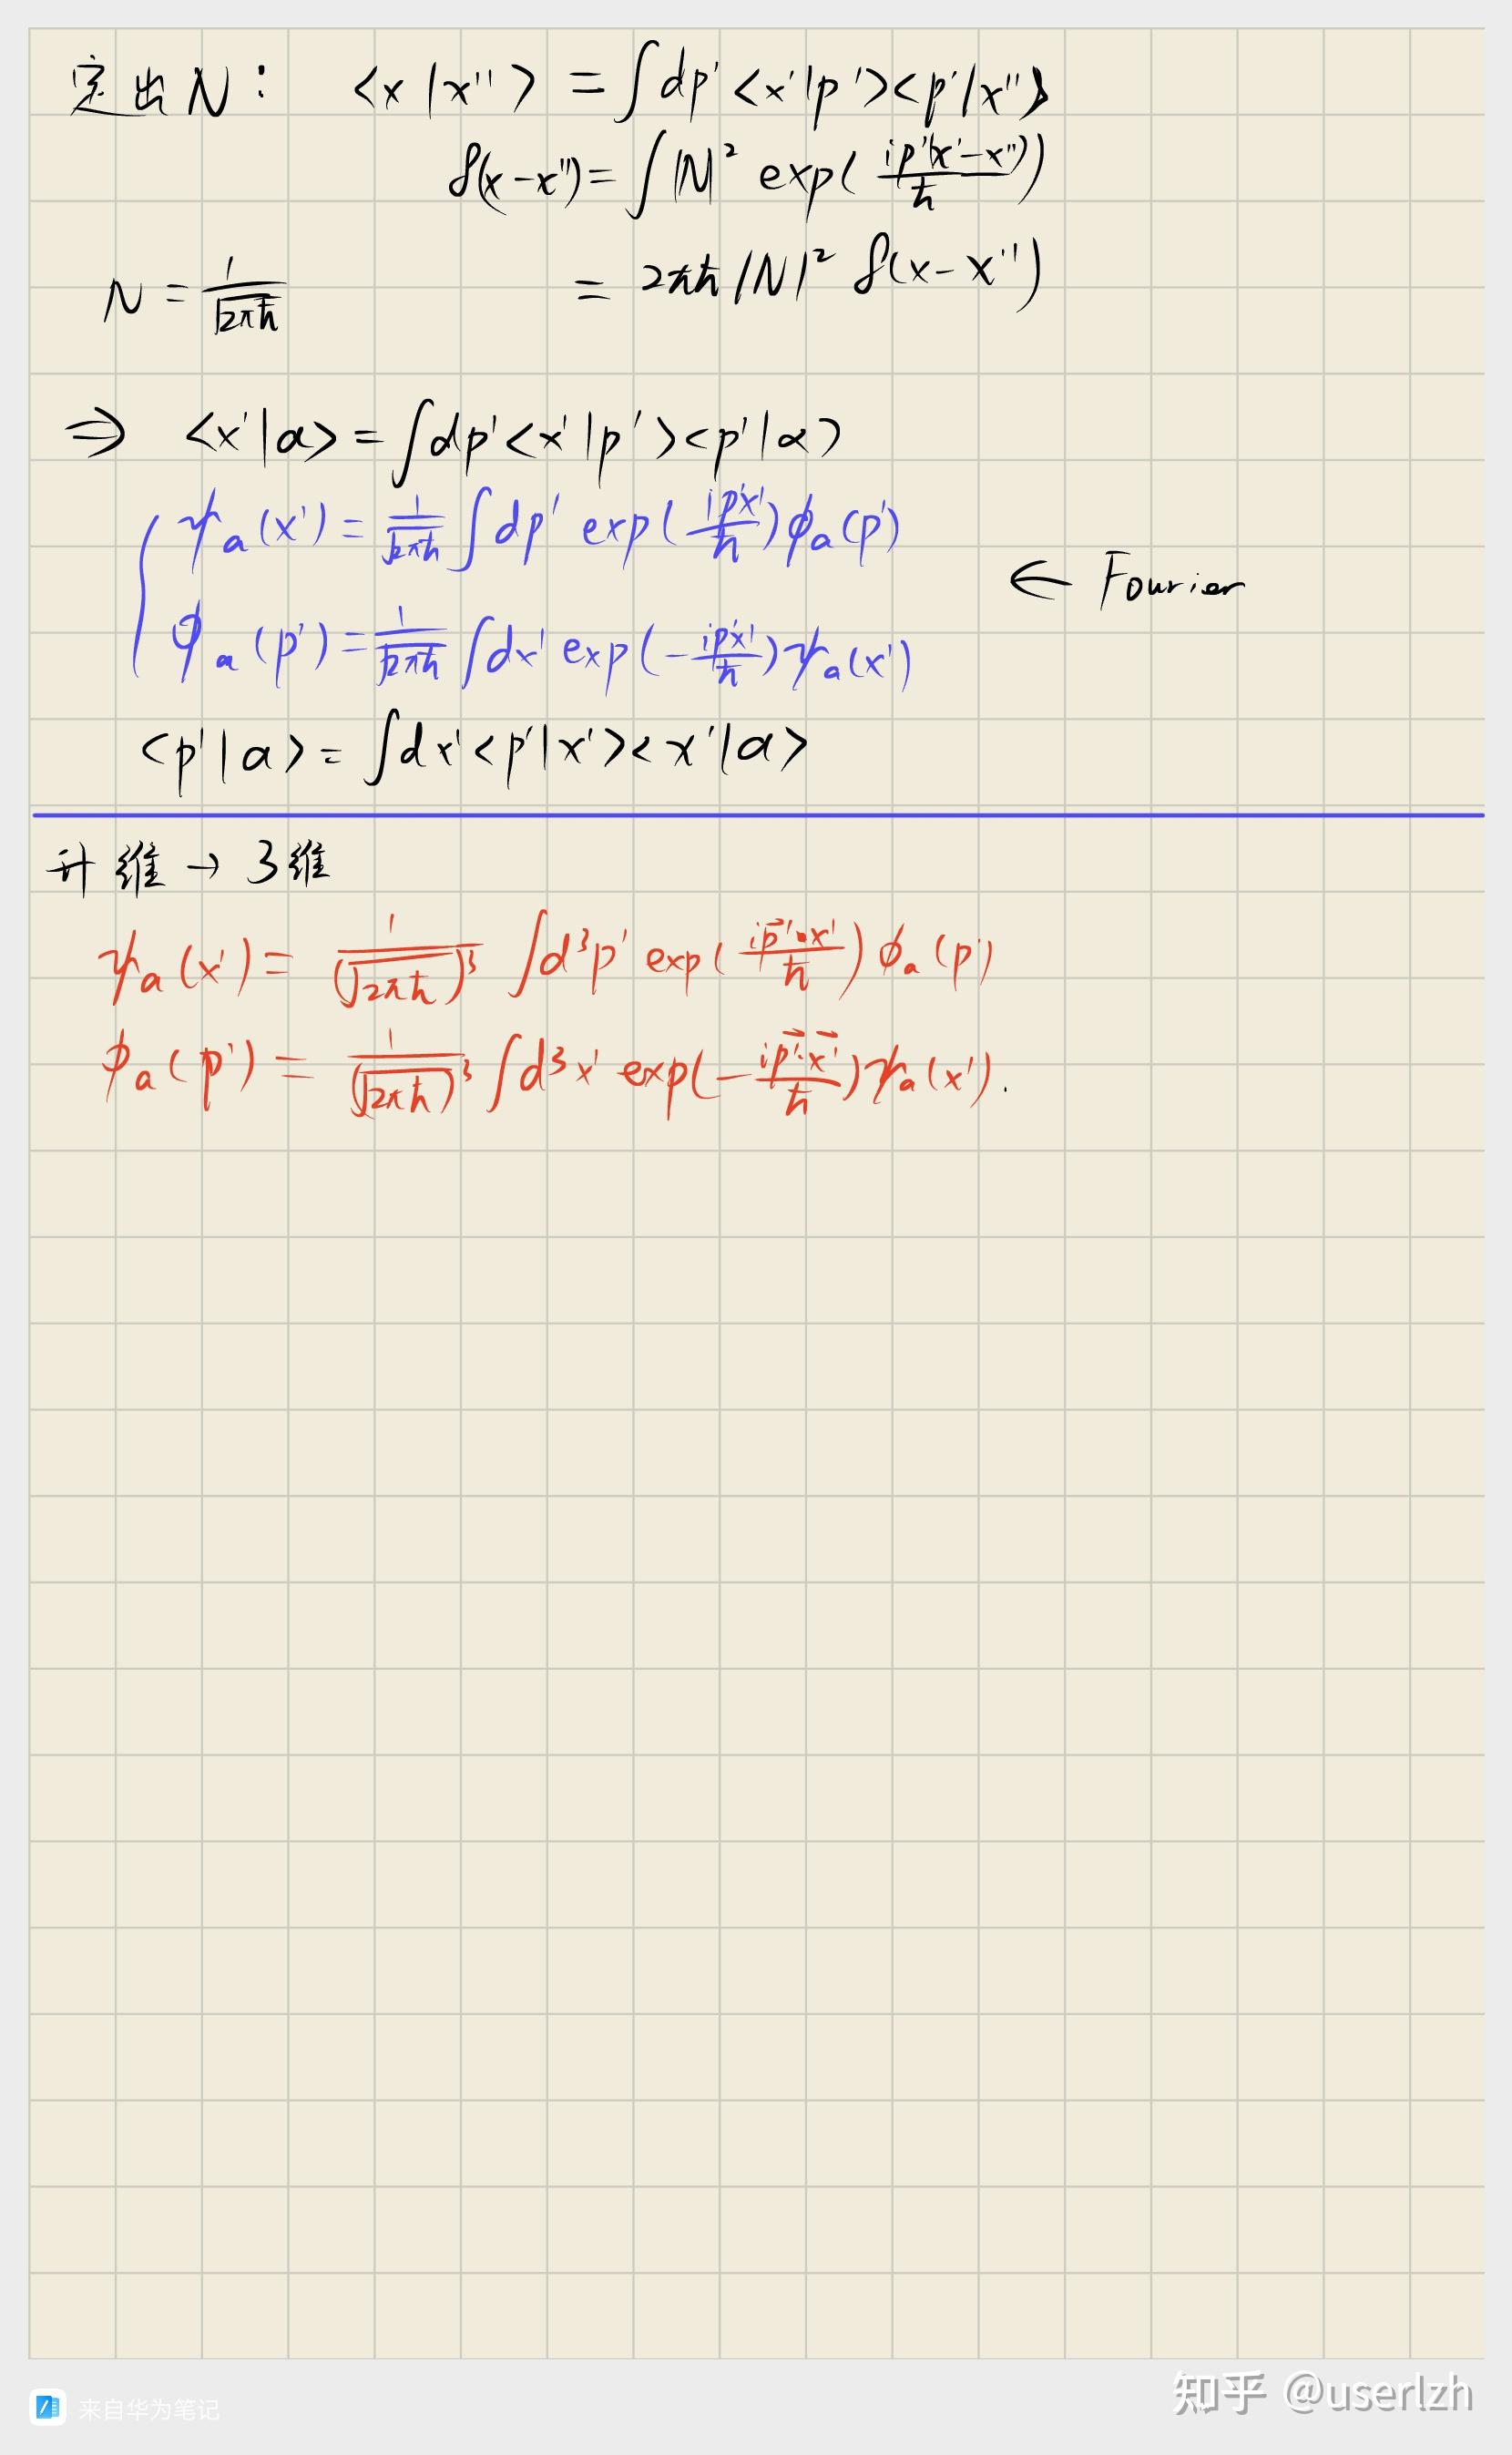 定出N: <x|x''> = ∫dp'<x'|p'><p'|x''>
δ(x-x'') = ∫|N|² exp(ip'(x'-x'')/ħ)
N = 1/√2πħ = 2πħ|N|² δ(x-x'')
⇒ <x'|a> = ∫dp'<x'|p'><p'|α>
ψₐ(x') = 1/√2πħ ∫dp' exp(ip'x'/ħ)ϕₐ(p')
← Fourier
ϕₐ(p') = 1/√2πħ ∫dx' exp(-ip'x'/ħ)ψₐ(x')
<p'|a> = ∫dx'<p'|x'><x'|a>
升维→3维
ψₐ(x') = 1/(√2πħ)³ ∫d³p' exp(ip⃗'·x'/ħ)ϕₐ(p')
ϕₐ(p') = 1/(√2πħ)³ ∫d³x' exp(-ip⃗'·x⃗'/ħ)ψₐ(x').
来自华为笔记
知乎 @userlzh